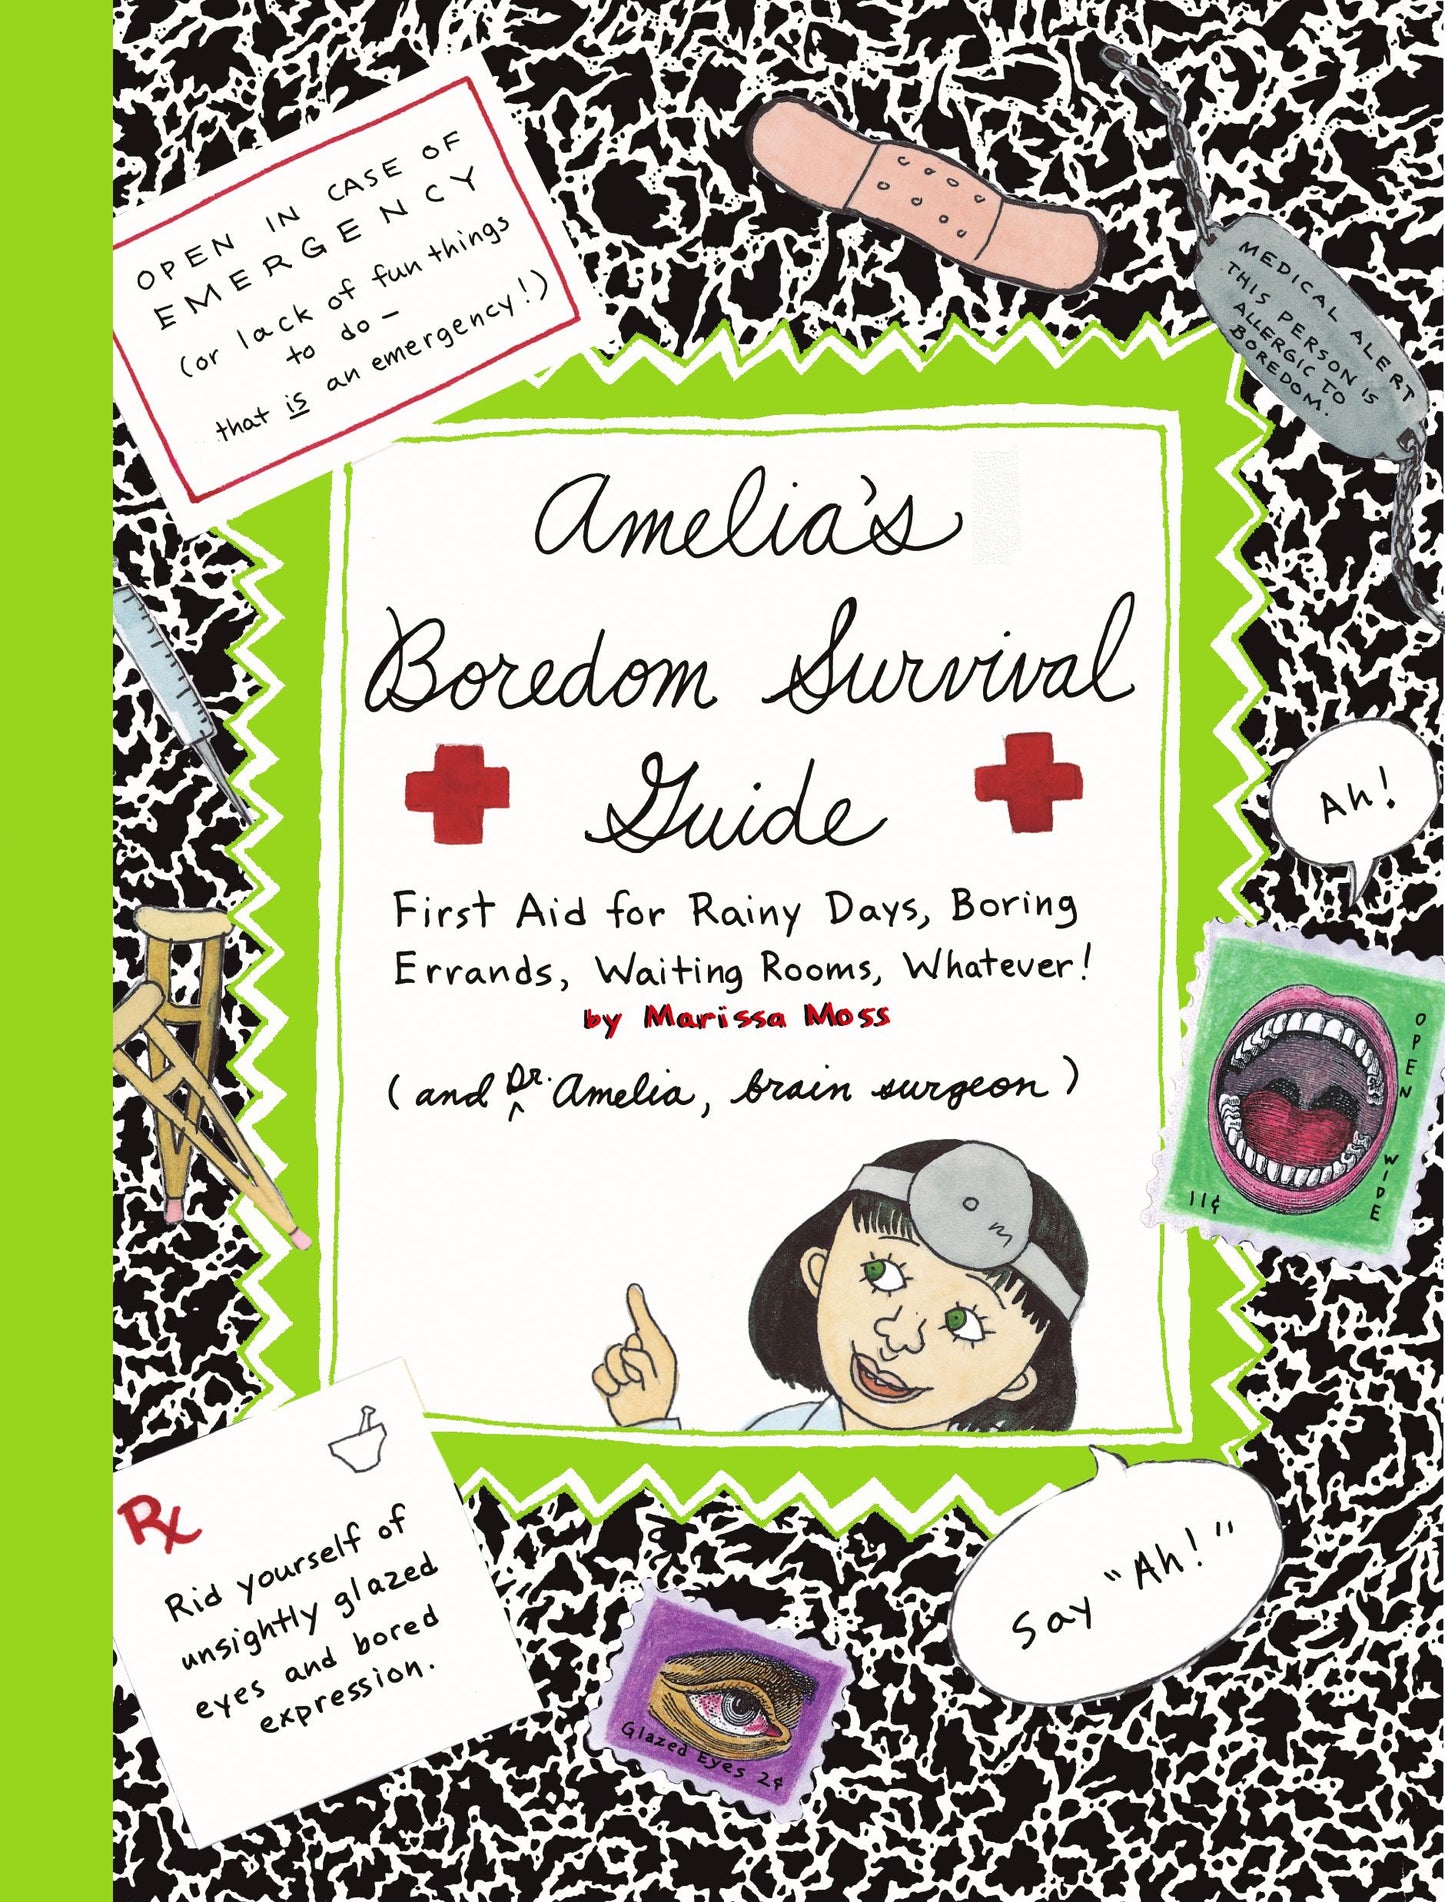 OPEN IN CASE OF
EMERGENCY
(or lack of fun things
to do –
that is an emergency!)
MEDICAL ALERT
THIS PERSON IS
ALLERGIC TO
BOREDOM.
Amelia's
Boredom Survival
Guide
First Aid for Rainy Days, Boring
Errands, Waiting Rooms, Whatever!
by Marissa Moss
(and Dr. Amelia, brain surgeon)
Ah!
OPEN WIDE
11¢
Rx
Rid yourself of
unsightly glazed
eyes and bored
expression.
Say "Ah!"
Glazed Eyes 2¢